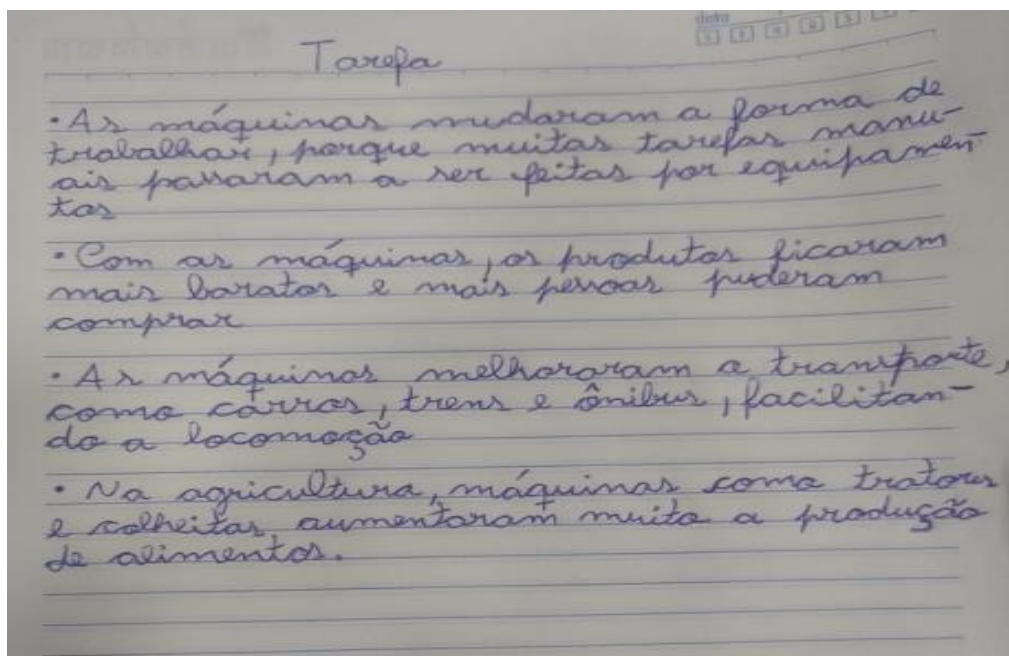 data
Tarefa
• As máquinas mudaram a forma de
trabalhar, porque muitas tarefas manu-
ais passaram a ser feitas por equipamen-
tos
• Com as máquinas, os produtos ficaram
mais baratos e mais pessoas puderam
comprar
• As máquinas melhoraram o transporte,
como carros, trens e ônibus, facilitan-
do a locomoção
• Na agricultura, máquinas como tratores
e colheitas, aumentaram muito a produção
de alimentos.